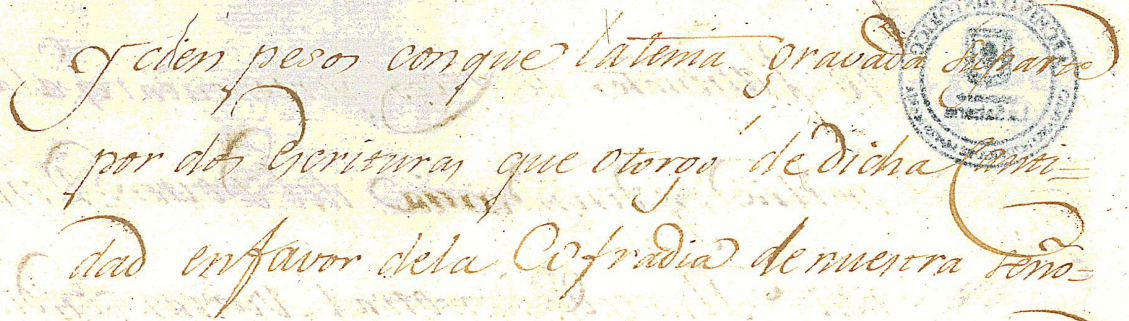 Y cien pesos conque la tenia gravada
por dos Escrituras que otorgó de dicha Canti=
dad en favor dela Cofradia de nuestra seño=